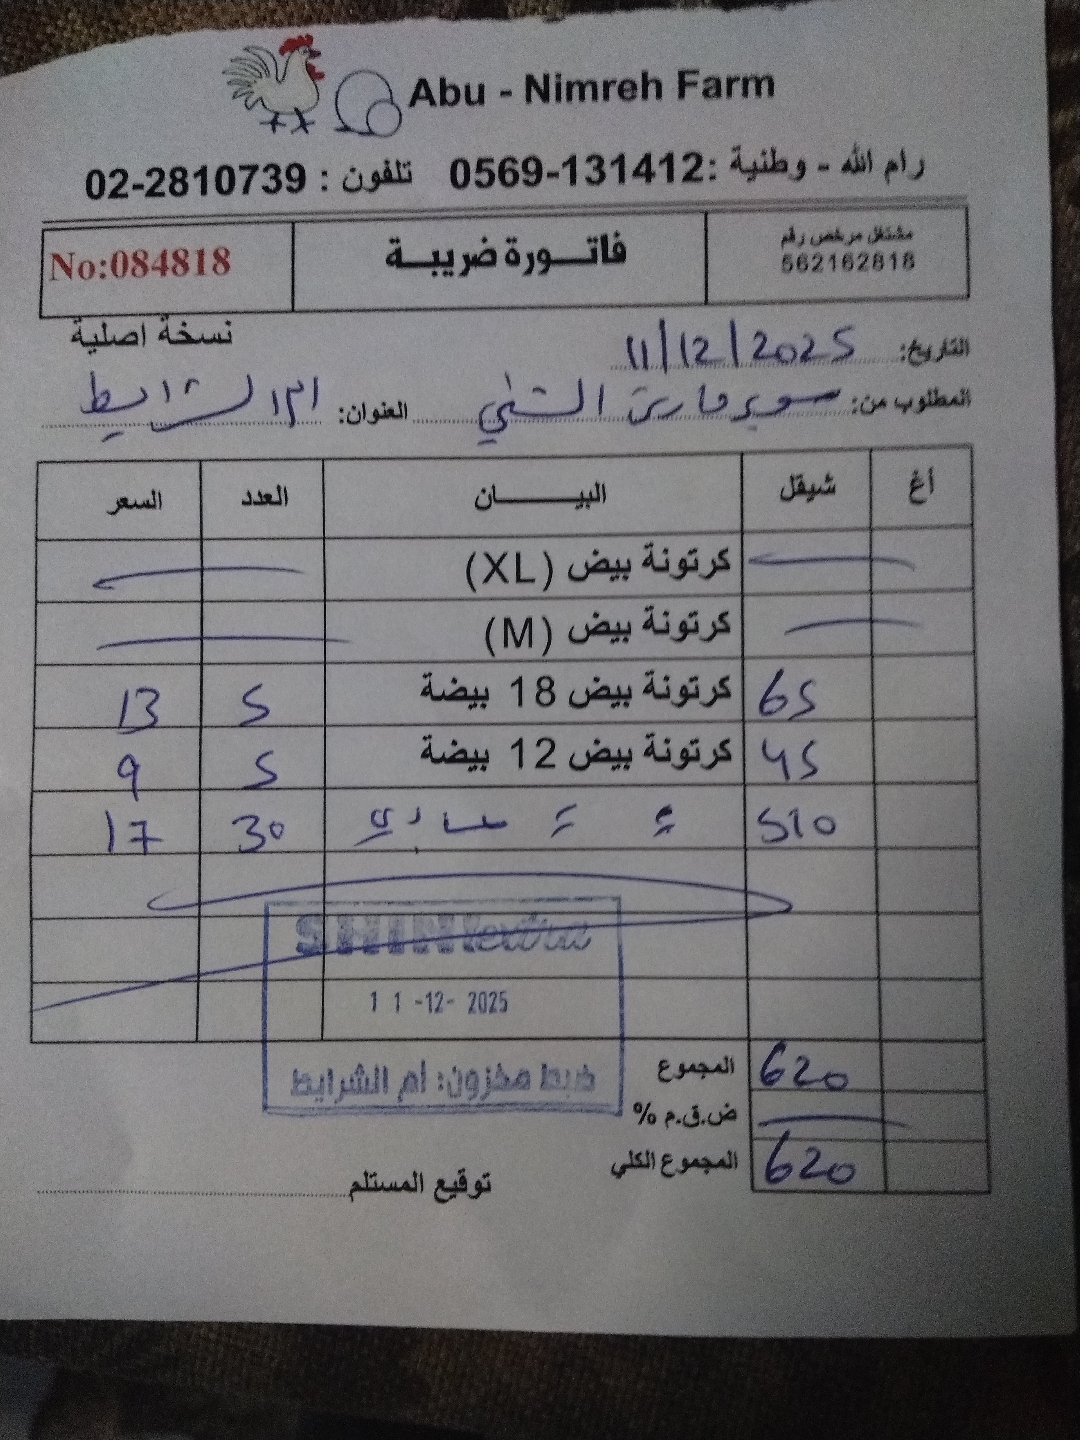 Abu - Nimreh Farm
رام الله - وطنية :0569-131412 تلفون : 02-2810739
مشتغل مرخص رقم
562162818
فاتورة ضريبة
No:084818
نسخة اصلية
التاريخ: 11/12/2025
المطلوب من: سوبر ماركت الشني العنوان: ام الشرايط
أغ شيقل البيان العدد السعر
كرتونة بيض (XL)
كرتونة بيض (M)
65 كرتونة بيض 18 بيضة 5 13
45 كرتونة بيض 12 بيضة 5 9
510 = = عادي 30 17
SHINI extra
11 -12- 2025
ضبط مخزون: أم الشرايط
المجموع 620
ض.ق.م %
المجموع الكلي 620
توقيع المستلم